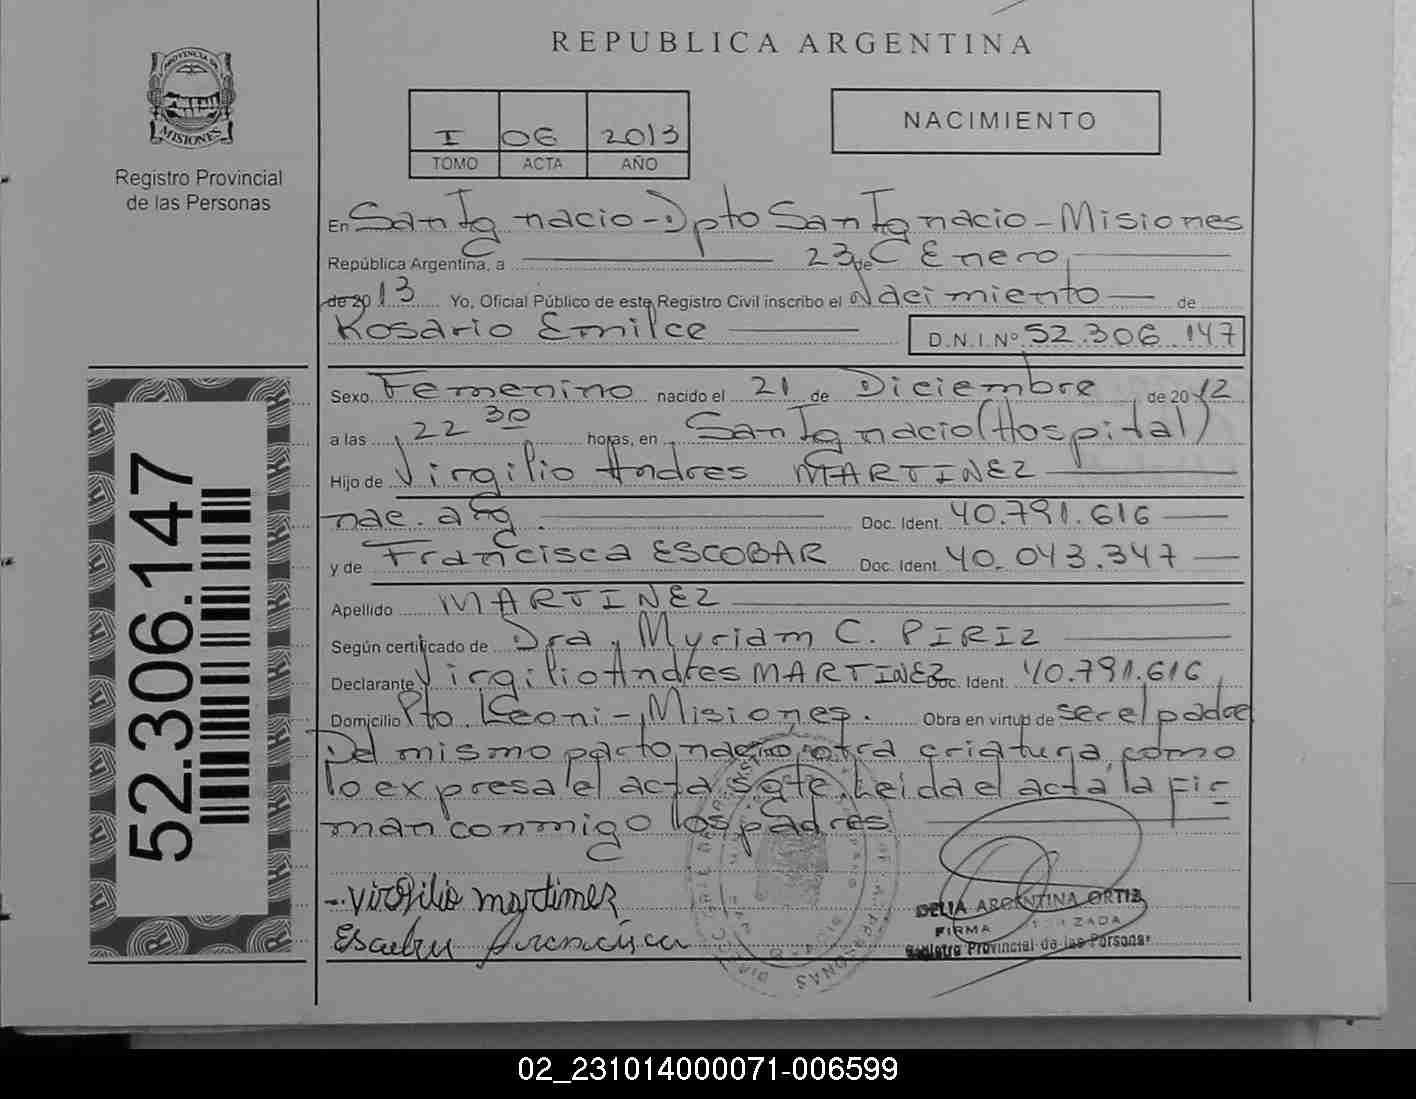 REPUBLICA ARGENTINA
PROVINCIA DE
MISIONES
Registro Provincial
de las Personas
I 06 2013
TOMO ACTA AÑO
NACIMIENTO
En San Ignacio - Dpto San Ignacio - Misiones
República Argentina, a 23 de Enero
de 2013 Yo, Oficial Público de este Registro Civil inscribo el Nacimiento de
Rosario Emilce D.N.I. Nº 52.306.147
Sexo Femenino nacido el 21 de Diciembre de 2012
a las 22 30 horas, en San Ignacio (Hospital)
Hijo de Virgilio Andres MARTINEZ
nac. arg. Doc. Ident. 40.791.616
y de Francisca ESCOBAR Doc. Ident. 40.043.347
Apellido MARTINEZ
Según certificado de Dra. Myriam C. PIRIZ
Declarante Virgilio Andres MARTINEZ Doc. Ident. 40.791.616
Domicilio Pto Leoni - Misiones. Obra en virtud de ser el padre
Del mismo parto nacio otra criatura, como
lo expresa el acta sgte. Leida el acta la fir-
man conmigo los padres
Virgilio martinez
Francisca
DELIA ARGENTINA ORTIZ
FIRMA
Registro Provincial de las Personas
52.306.147
02_231014000071-006599